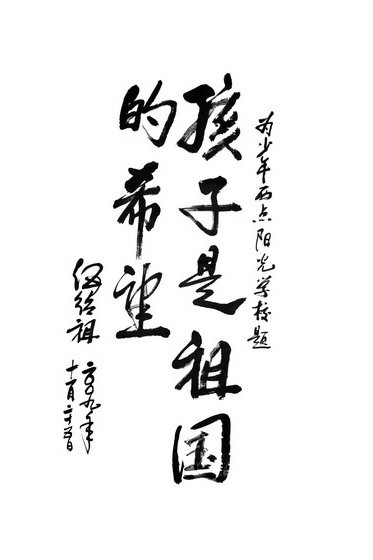 为少年西点阳光学校题
孩子是祖国
的希望
伍绍祖
二〇〇九年
十一月二十五日